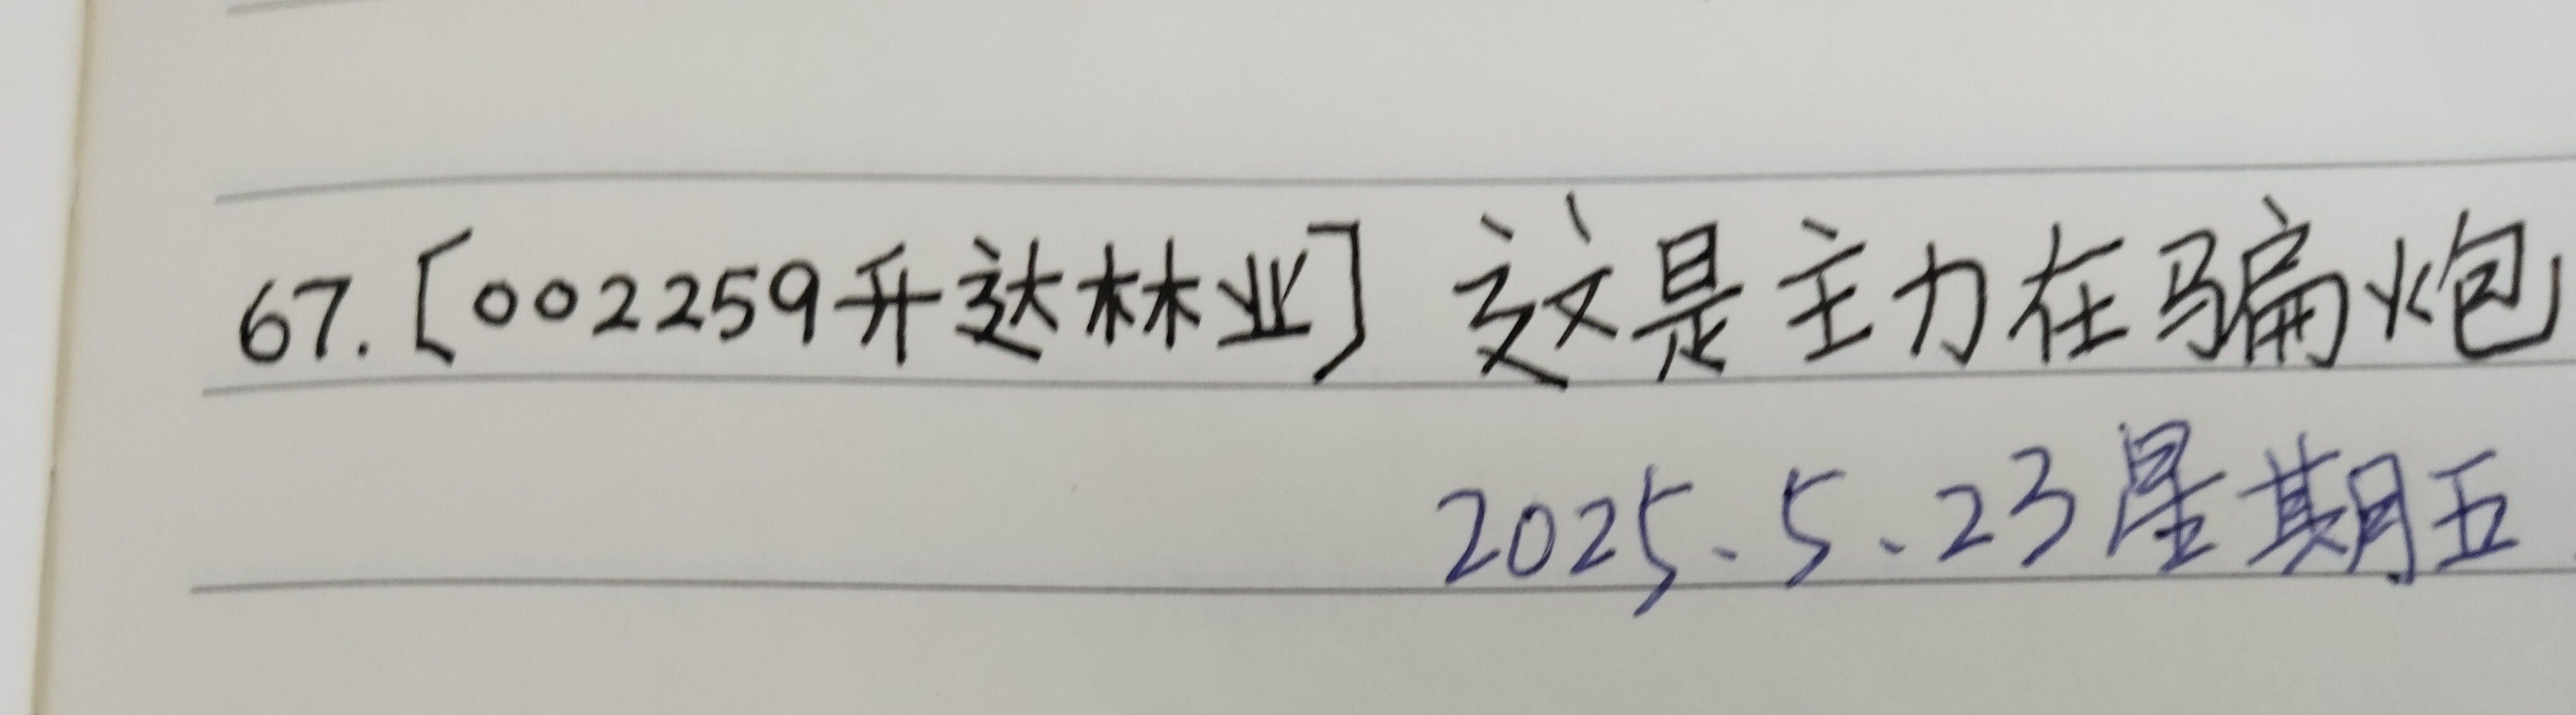 67.[002259升达林业] 这是主力在骗炮
2025.5.23星期五